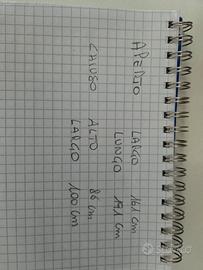 APERTO LARGO 161 cm
LUNGO cm
CHIUSO ALTO 86 cm
LARGO 100 cm